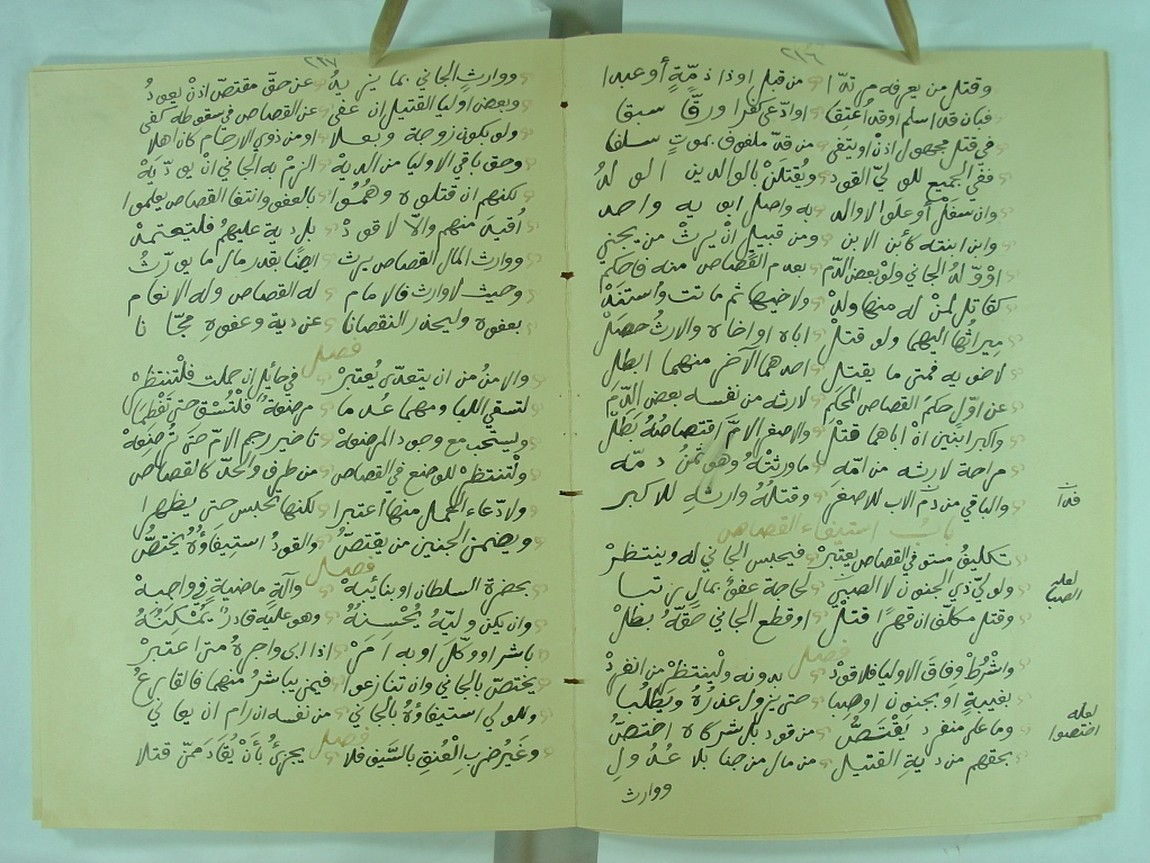 ٢١٦
وقتل من يعرفه مرتدا من قبل او ذا ذمة أو عبدا
فبان قد اسلم او قد أعتقا او ادعى كفرا ورقا سبقا
في قتل مجهول اذن او ينتفي من قد ملفوف بموت سلفا
ففي الجميع للولي القود ويقتلن بالوالدين الولد
وان سفل أو علوا لا والد به واصل ابويه واحد
وابن ابنته كابن الابن ومن قبيل ان يرث من يجني
او ولد الجاني ولو بعض الدم بعدم القصاص منه فاحكم
كقاتل لمن له منها ولد ولاخيها ثم ماتت واستند
ميراثها اليهما ولو قتل اباه او اخاه والارث حصل
لاخويه فمتى ما يقتل احدهما الآخر منهما ابطل
عن اول حكم القصاص المحكم لارثه من نفسه بعض الدم
واكبر ابنين اذ اباهما قتل والاصغر الام اقتصاصه بطل
مراحة لارثه من امه ما ورثته وهو ثمن دمه
والباقي من دم الاب للاصغر وقتله وارثه للاكبر
باب استيفاء القصاص
تكليف مستوفي القصاص يعتبر فيحبس الجاني له وينتظر
ولولي ذي الجنون لا الصبي لحاجة عفو بمال
وقتل مكلف ان قهرا قتل او قطع الجاني حقه بطل
فصل
واشرط وفاق الاوليا فلا قود بدونه ولينتظر من انفرد
بغيبة او بجنون او صبا حتى يزول عذره ويطلبا
وما على منفرد يقتص من قود بل شركاه اختص
بحقهم من دية القتيل من مال من جنا بلا عدول
ووارث
لعله الصبا
لعله اختصوا
٢١٧
ووارث الجاني بما يزيد عن حق مقتص اذن يعود
وبعض اوليا القتيل ان عفى عن القصاص في سقوطه كفى
ولو يكون زوجة وبعلا او من ذوي الارحام كان اهلا
وحق باقي الاوليا من الديه الزم به الجاني ان يوديه
لكنهم ان قتلوه وهموا بالعفو وانتفا القصاص يعلموا
أقيد منهم والا لا قود بل دية عليهم فلتعتمد
ووارث المال القصاص يرث ايضا بقدر مال ما يورث
وحيث لا وارث فالامام له القصاص وله الانعام
بعفوه وليحذر النقصانا عن دية وعفوه مجانا
فصل
والامن من ان يتعدى يعتبر في حائل ان حملت فلتنتظر
لتسقي اللبا ومهما عدما مرضعة فلتسق حتى تفطما
ويستحب مع وجود المرضعه تاخير رجم الام حتى ترضعه
ولتنتظر للوضع في القصاص من طرف والحد كالقصاص
ولادعاء الحمل منها اعتبرا لكنها تحبس حتى يظهرا
ويضمن الجنين من يقتص والقود استيفاؤه يختص
فصل
بحضرة السلطان او بنائبه وآلة ماضية واجبه
وان يكن وليه يحسنه وهو عليه قادر يمكنه
باشر او وكل او به امر اذا ابى واجره ممن اعتبر
يختص بالجاني وان تنازعوا فيمن يباشر منهما فالقارع
وللولي استيفاؤه بالجاني من نفسه ان رام ان يعاني
فصل
وغير ضرب العنق بالسيف فلا يجزئ بأن يقاد ممن قتلا